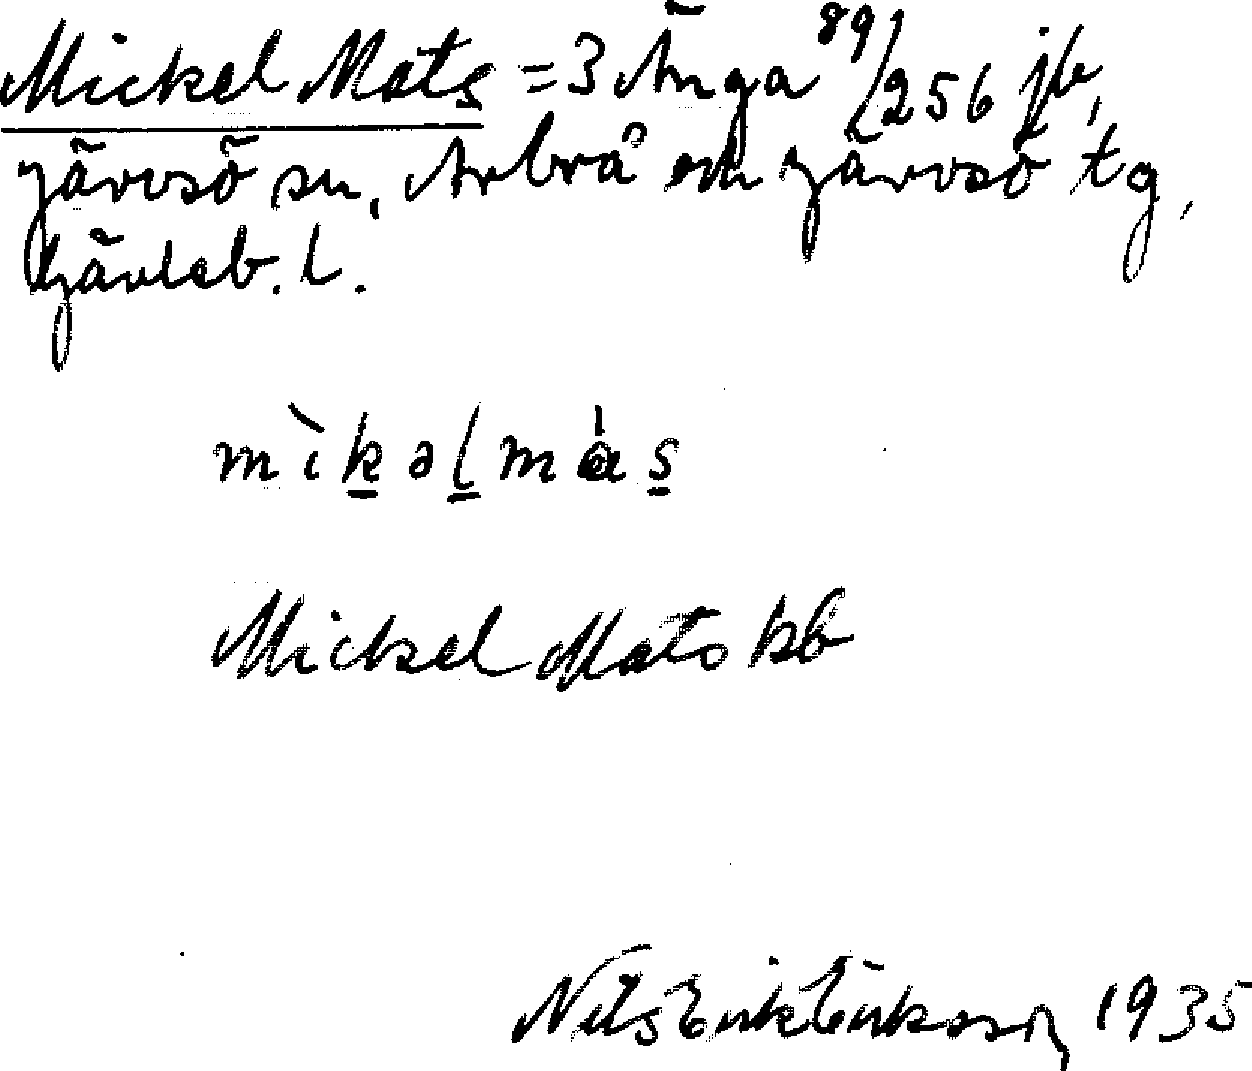 Mickel Mats = 3 Änga 89/256 jb,
Järvsö sn, Arbrå och Järvsö tg,
Gävleb. l.
mìkəlmás
Mickel Mats kb
Nils Erik Eriksson 1935